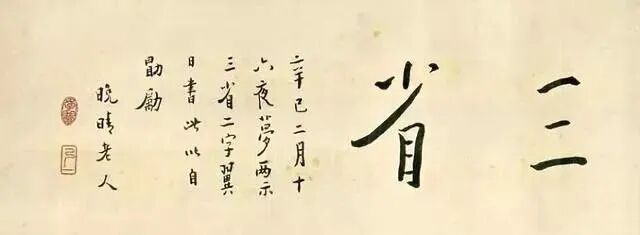 三省
辛巳二月十
六夜夢两示
三省二字翼
日書此以自
勗勵
晚晴老人